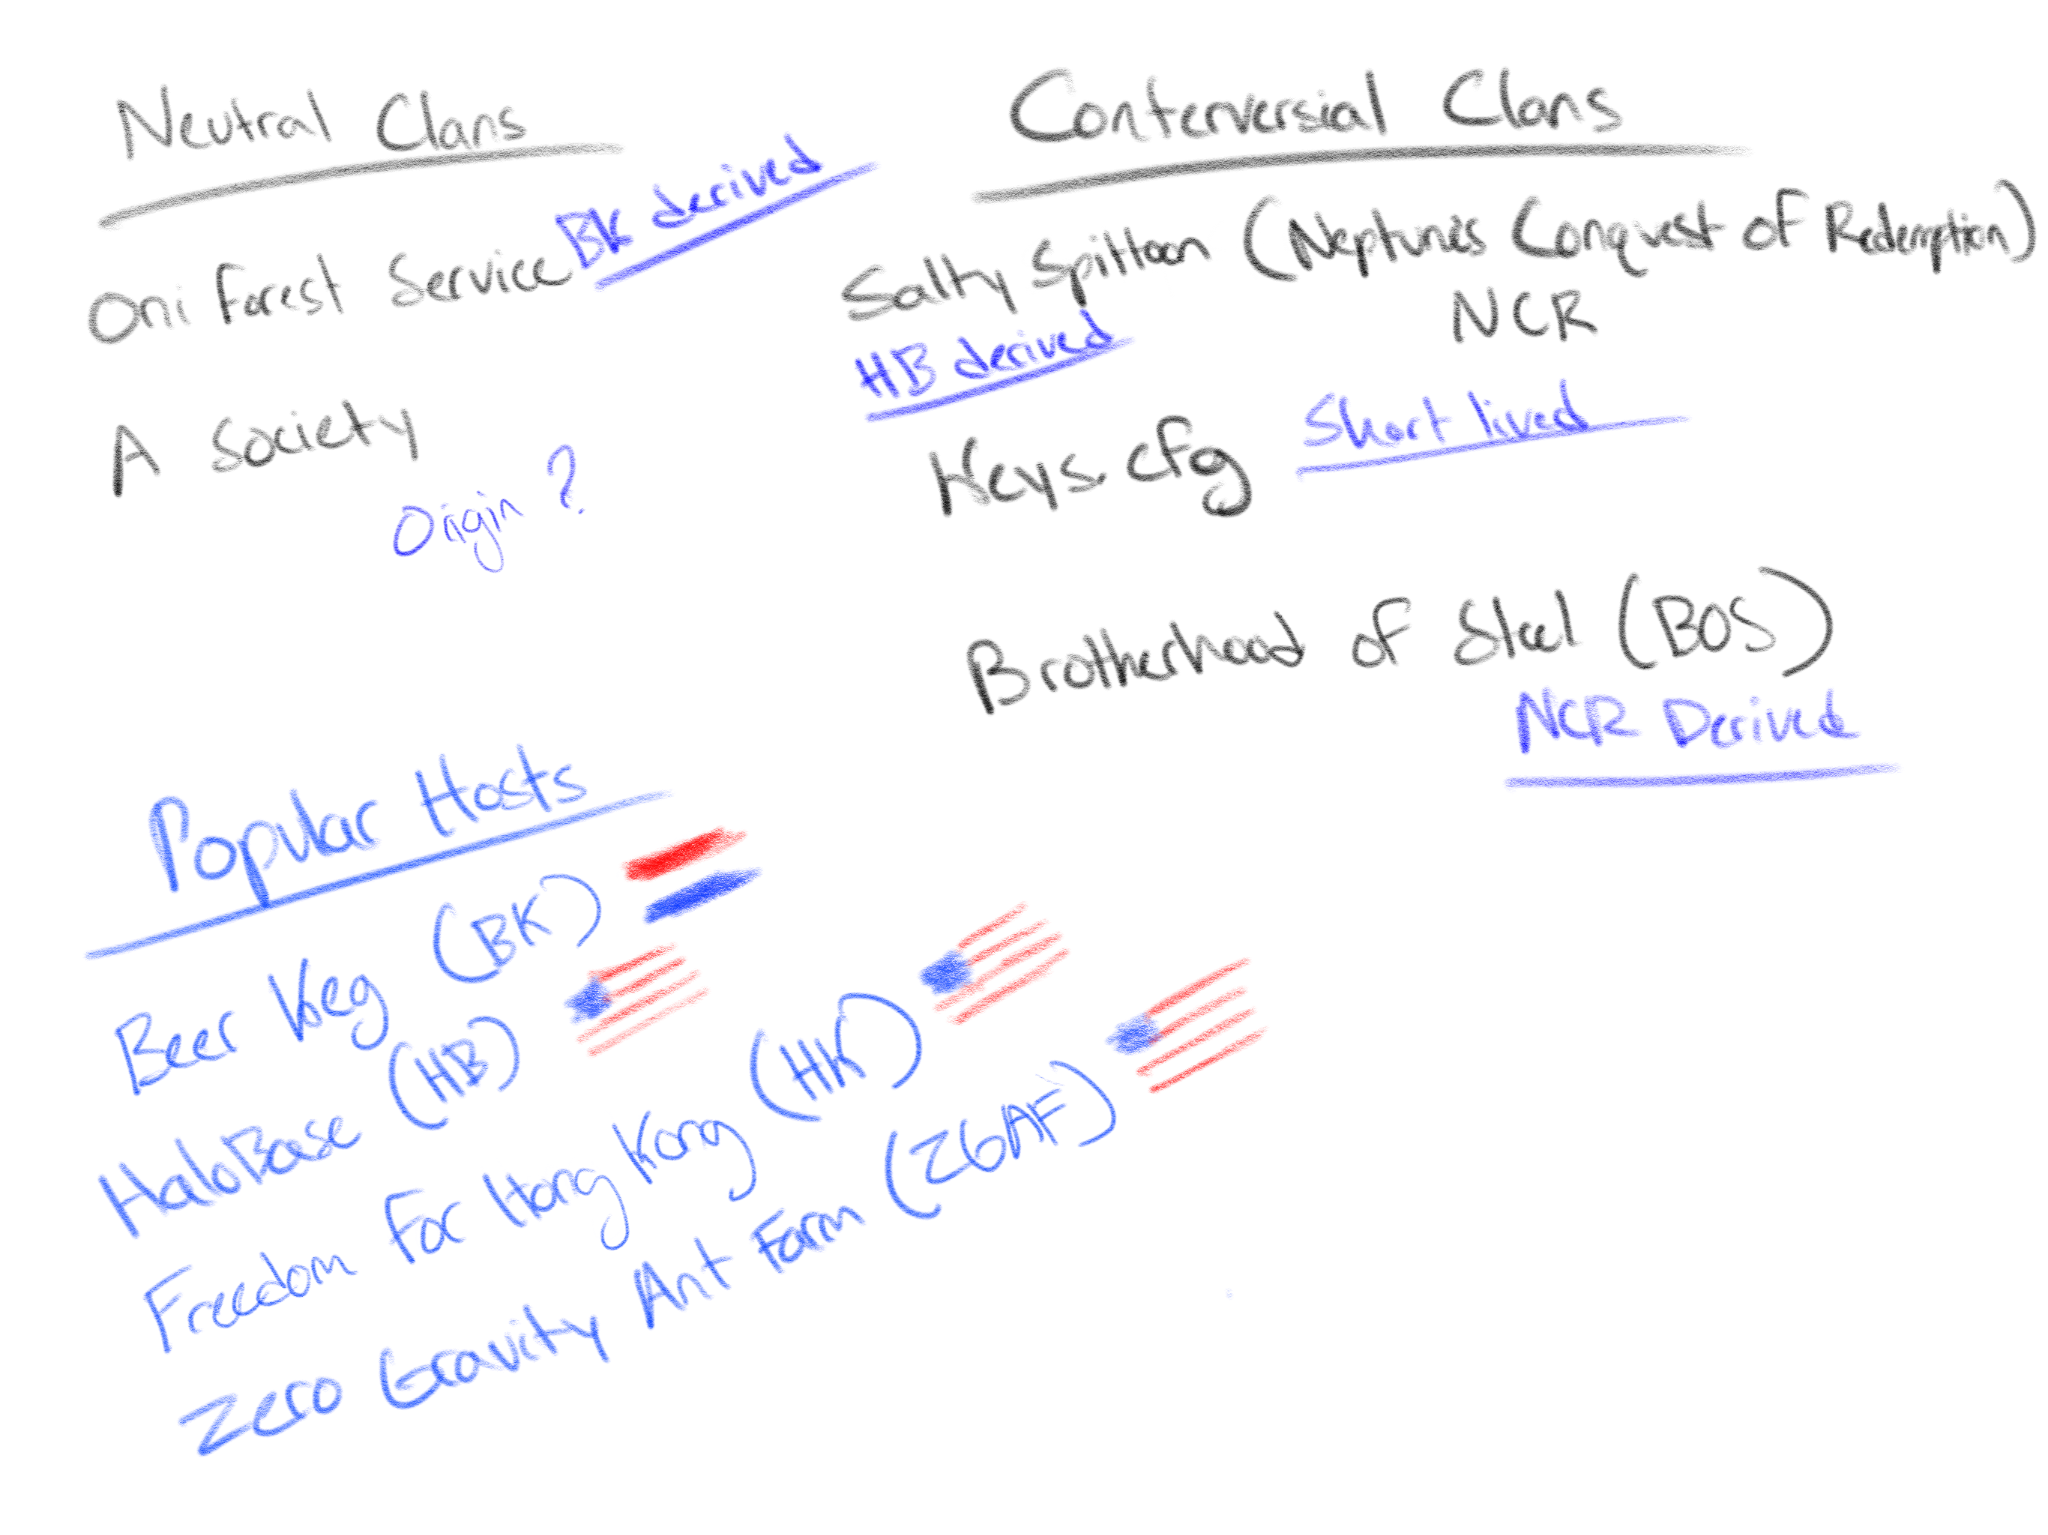 Neutral Clans
Oni Forest Service
BK derived
A Society
Origin ?
Conterversial Clans
Salty Spittoon (Neptunes Conquest of Redemption)
NCR
HB derived
Keys.cfg
Short lived
Brotherhood of Steel (BOS)
NCR Derived
Popular Hosts
Beer Keg (BK)
HaloBase (HB)
Freedom For Hong Kong (HK)
Zero Gravity Ant Farm (ZGAF)